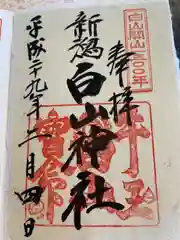 白山開山一三〇〇年
奉拝
新潟
白山神社
平成二十九年二月四日
牛玉
寶印